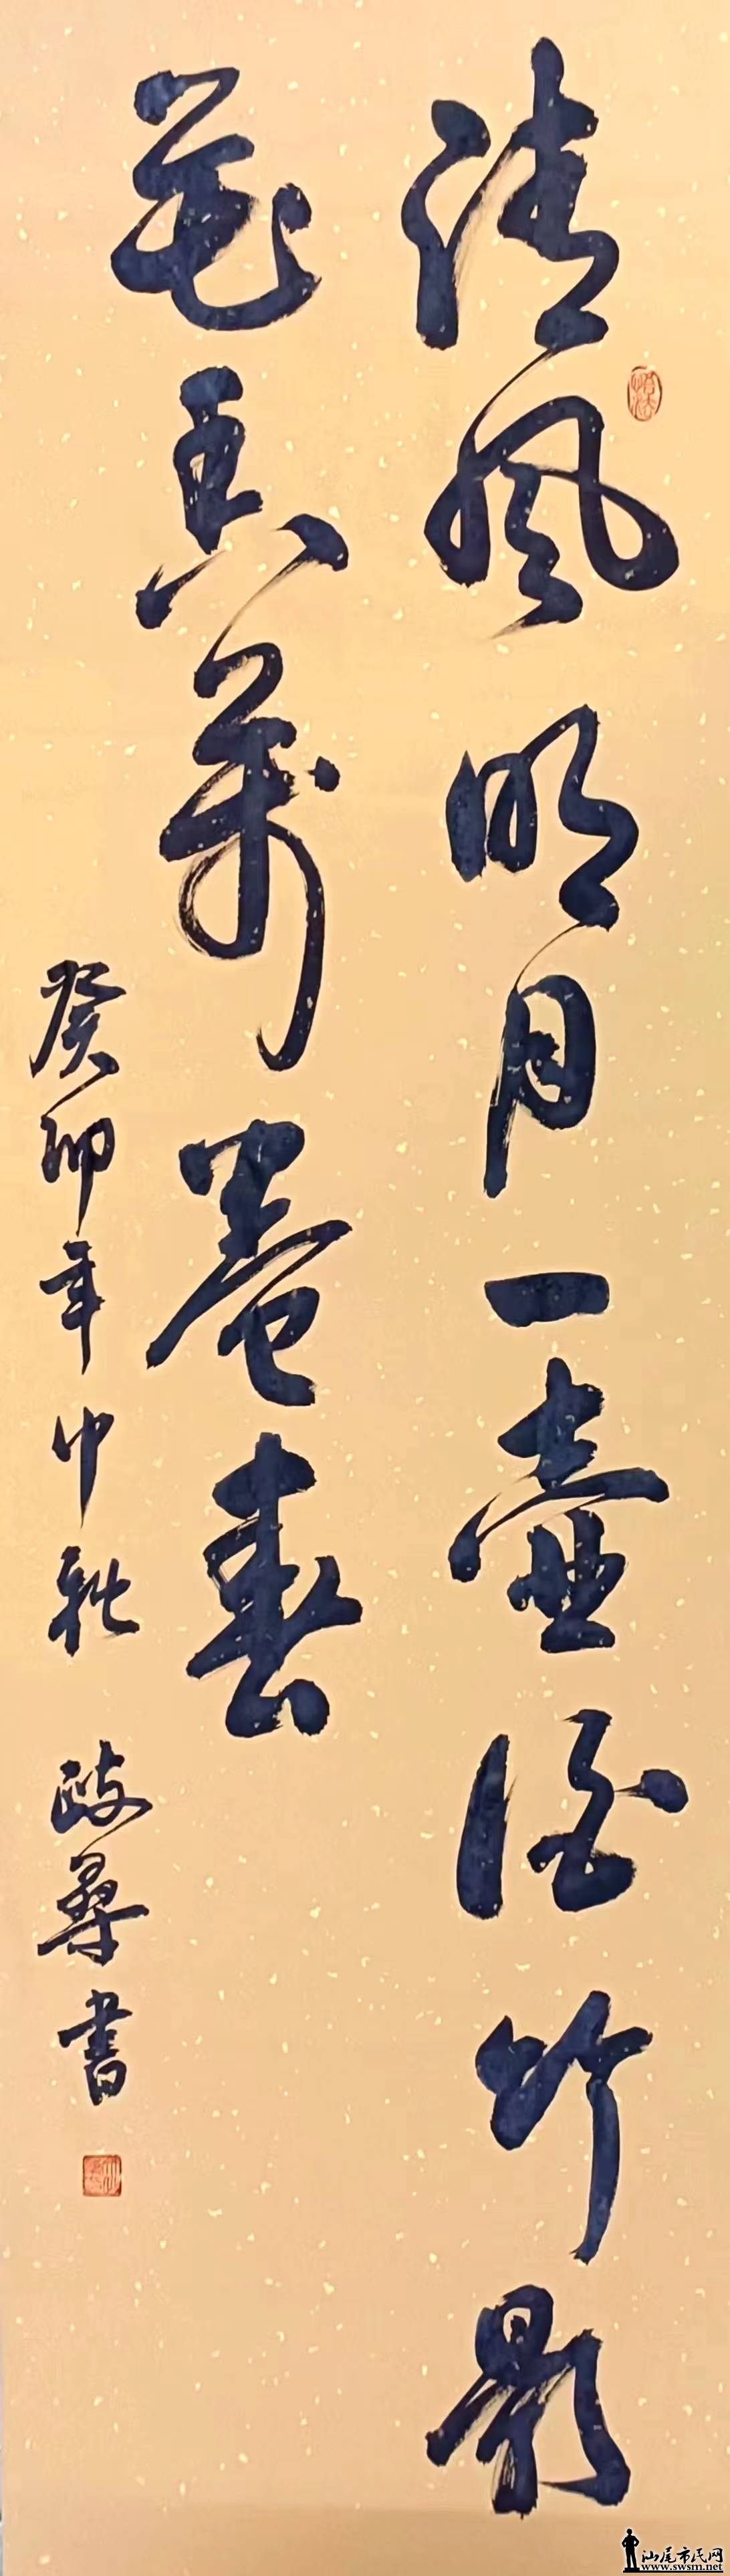 清风明月一壶酒竹影
花香万卷春
癸卯年中秋 歧寻書
汕尾市民网
www.swsm.net